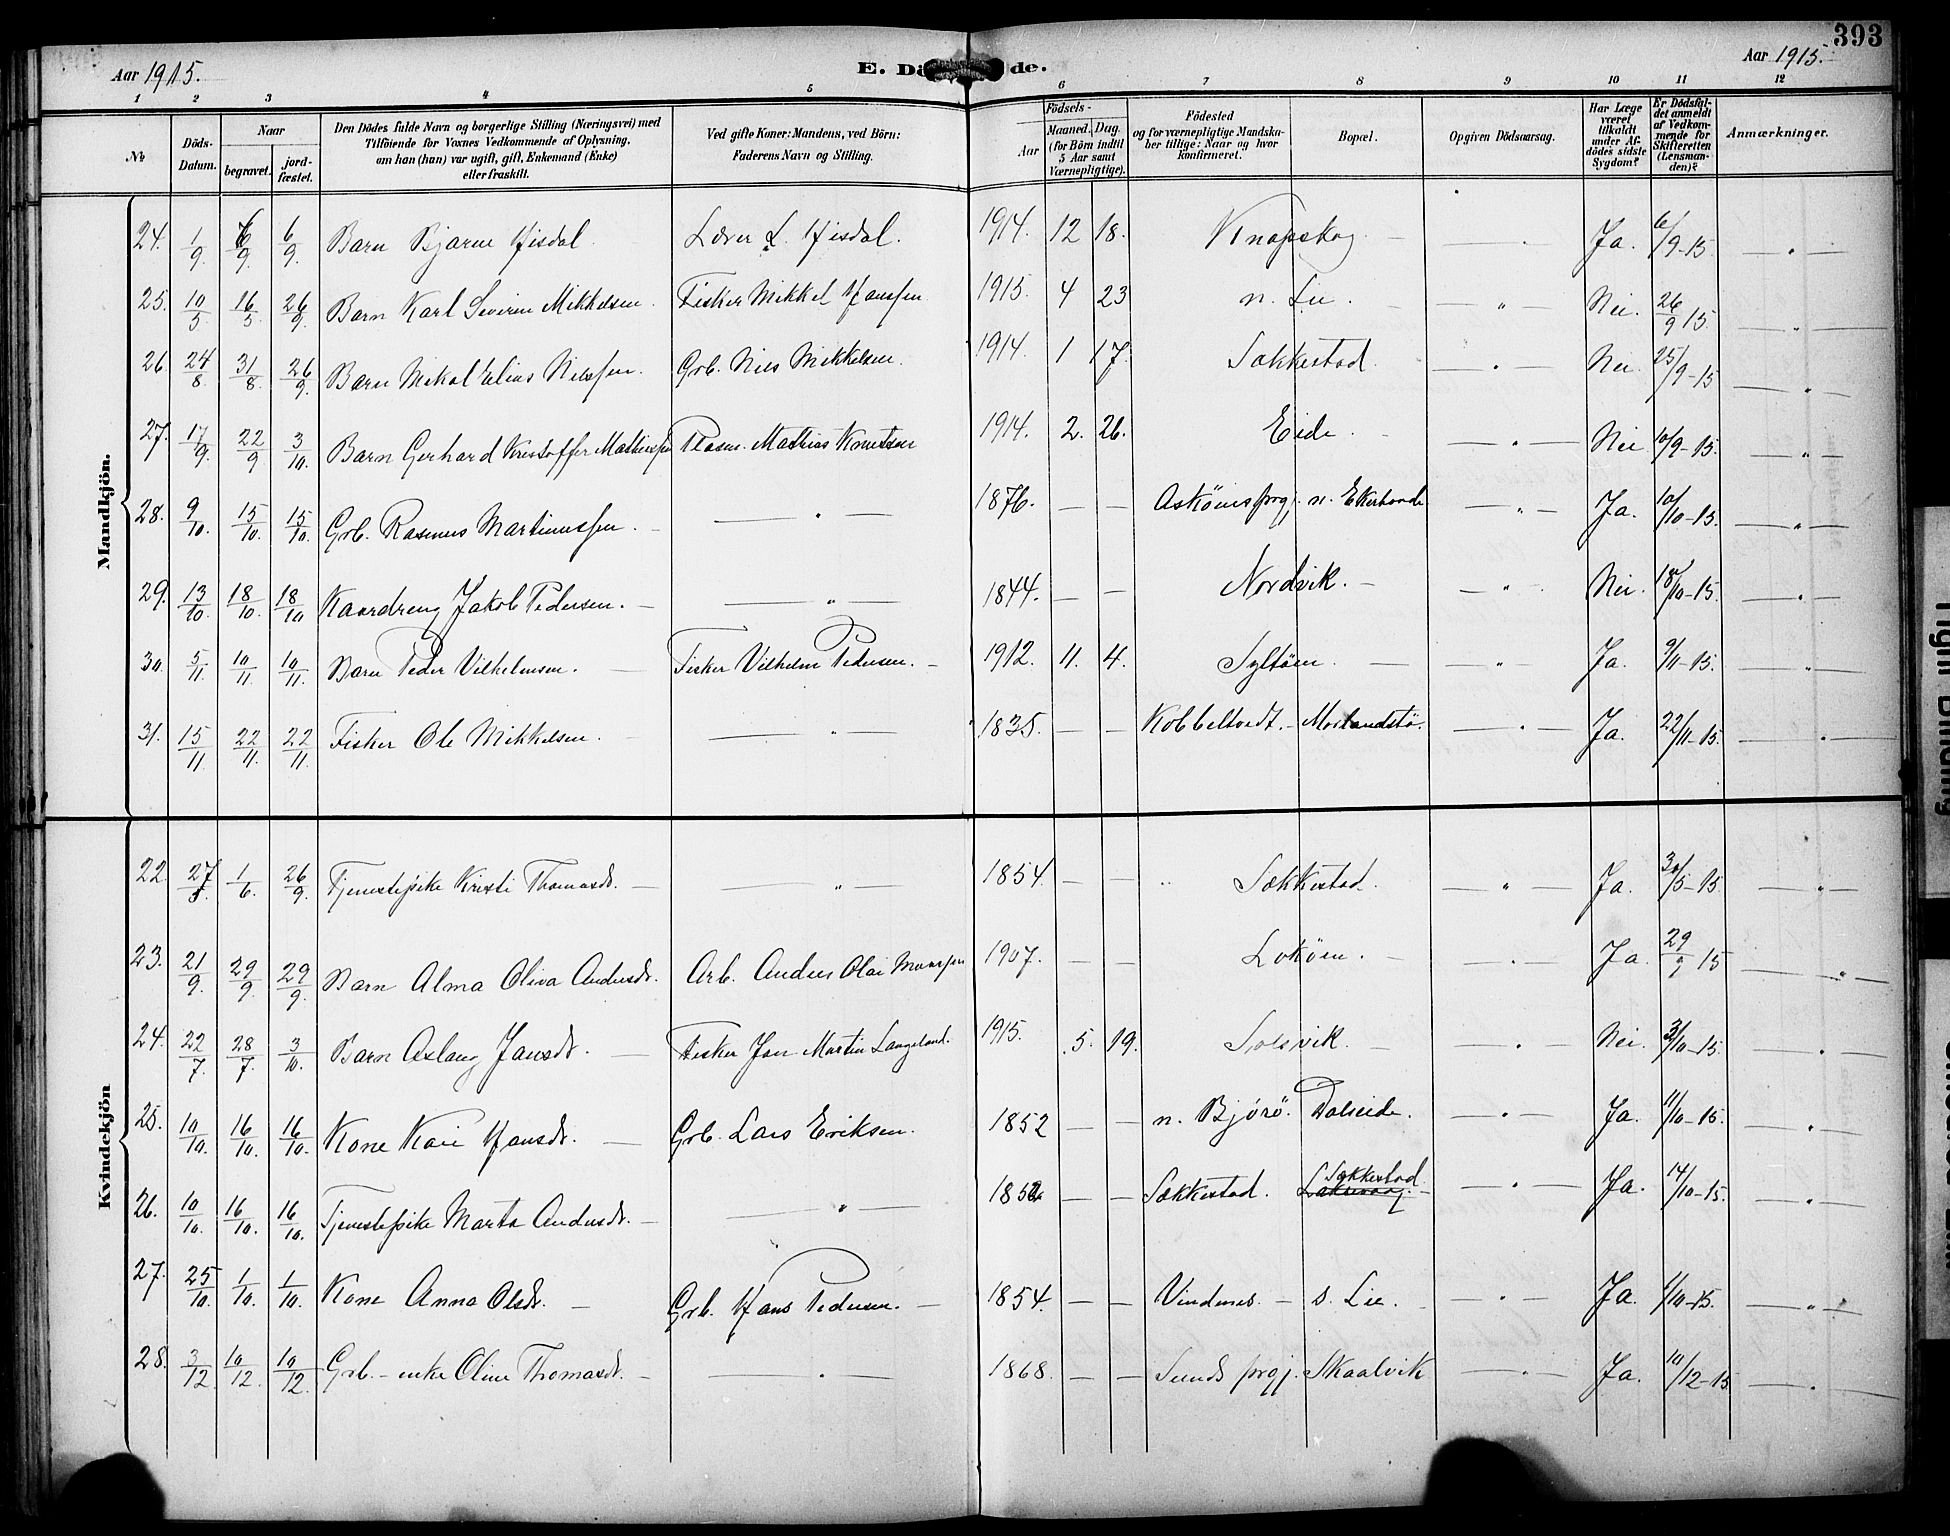 393
Aar 1915. E. Dö de. Aar 1915.
1 2 3 4 5 6 7 8 9 10 11 12
No
Döds-Datum.
Naar
begravet.
jord-fæstet.
Den Dödes fulde Navn og borgerlige Stilling (Næringsvei) med
Tilföiende for Voxnes Vedkommende af Oplysning,
om han (hun) var ugift, gift, Enkemand (Enke)
eller fraskilt.
Ved gifte Koner: Mandens, ved Börn:
Faderens Navn og Stilling.
Födsels-
Aar
Maaned. Dag.
(for Börn indtil
5 Aar samt
Værnepligtige).
Födested
og for værnepligtige Mandska-
ber tillige: Naar og hvor
konfirmeret.
Bopæl.
Opgiven Dödsaarsag.
Har Læge
været
tilkaldt
under Af-
dödes sidste
Sygdom?
Er Dödsfal-
det anmeldt
af Vedkom-
mende for
Skifteretten
(Lensman-
den)?
Anmærkninger.
Mandkjön.
24. 1/9 6/9 6/9 Barn Bjarne Hisdal. Lærer L. Hisdal. 1914. 12 18. Knapskog — " Ja. 6/9-15 "
25. 10/5 16/5 26/9 Barn Karl Severin Mikkelsen. Fisker Mikkel Hanssen 1915. 4 23 n. Lie. — " — Nei. 26/9 15. — " —
26. 24/8 31/8 26/9 Barn Mikal Elias Nilssen. Grb. Nils Mikkelsen. 1914. 1 17. Sakkestad. — " — Nei. 25/9-15 — " —
27. 17/9 22/9 3/10. Barn Gerhard Kristoffer Mathiassen Plasm. Mathias Knutsen 1914. 2. 26. Eide. — " — Nei 10/9-15. — " —
28. 9/10. 15/10. 15/10 Grb. Rasmus Martinussen. — " — 1876. — — Askøens prgj. n. Ekerhovde — " — Ja. 10/10-15. — " —
29. 13/10 18/10. 18/10 Kaardreng Jakob Pedersen. — " — 1844. — — Nordvik. — " Nei. 18/10-15. — " —
30. 5/11 10/11 10/11. Barn Peder Vilhelmsen. Fisker Vilhelm Pedersen. — 1912. 11. 4. Syltøen. — " — Ja. 9/11-15. — " —
31. 15/11. 22/11. 22/11. Fisker Ole Mikkelsen. — " — 1835. — — Kobbeltvedt. — Morlandstø. — " — Ja. 22/11-15. — " —
Kvindekjön
22. 27/5 1/6. 26/9. Tjenestepike Kristi Thomasdr. — " — 1854. — — " Sækkestad. — " — Ja. 30/5-15 — " —
23. 21/9. 29/9. 29/9. Barn Alma Oliva Andersdr. Arb. Anders Olai Monssen 1907. — — Lokøen. — " — Ja. 29/9 15 — " —
24. 22/7. 28/7. 3/10. Barn Aslaug Jansdr. — Fisker Jan Martin Langeland. 1915. 5. 19. Solsvik. — " — Nei. 3/10-15. "
25. 10/10. 16/10. 16/10. Kone Kari Hansdr. — Grb. Lars Eriksen. 1852 — — n. Bjórö. Dalseide. — " — Ja. 11/10-15. — " —
26. 10/10. 16/10. 16/10. Tjenestepike Marta Andersdr. — " — 1852 — — Sækkestad. Sækkestad — " — Ja. 14/10-15. — " —
27. 25/10. 1/10. 1/10. Kone Anna Olsdr. — Grb. Hans Pedersen. — 1854. — — Vindenes. — s. Lie. — " — Ja. 1/10-15. — " —
28. 3/12 10/12. 10/12 Grb.-enke Oline Thomasdr. — " — 1868. — — Sunds prgj. Skaalvik — " — Ja. 10/12-15. — " —